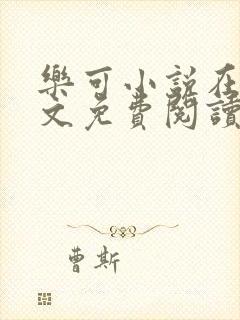 樂可小說在
文免費閱讀
曹斯